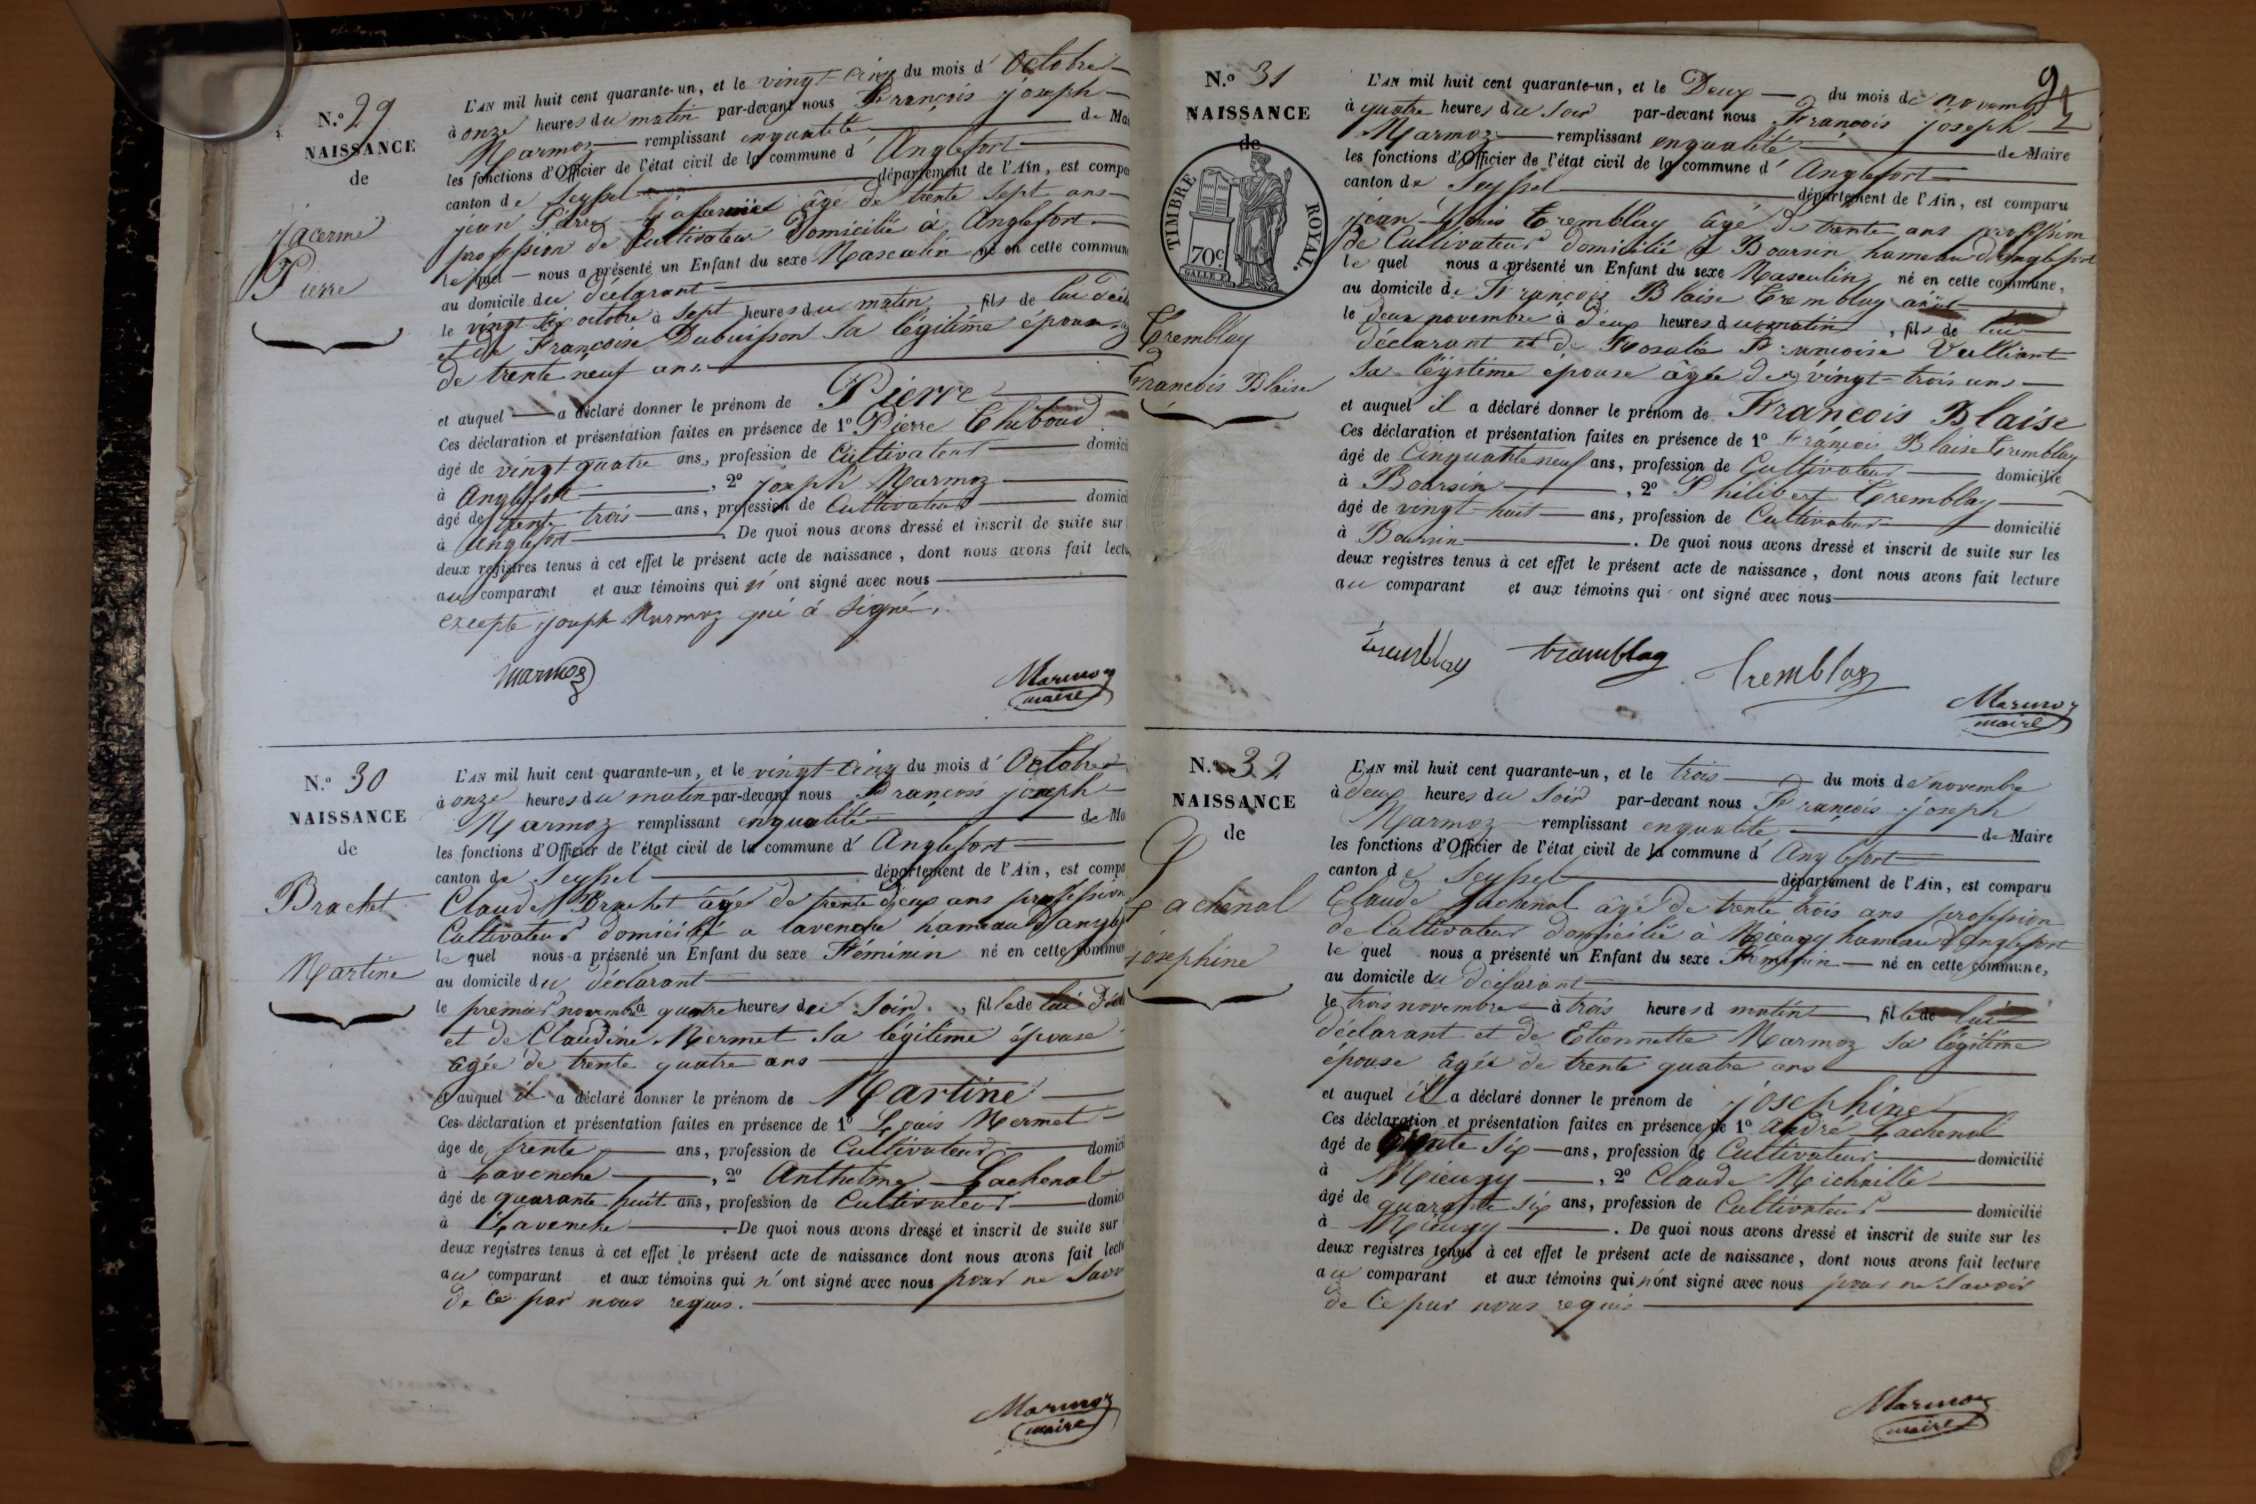 N.º 29
NAISSANCE
de
jacerme
Pierre
L'AN mil huit cent quarante-un, et le vingt-cinq du mois d' Octobre
à onze heures du matin par-devant nous François joseph
Marmoz remplissant en qualité de Mai
les fonctions d'Officier de l'état civil de la commune d' Anglefort
canton de Seyssel département de l'Ain, est compa
jean Pierre âgé de trente sept ans
profession de Cultivateur domicilié à Anglefort
le quel nous a présenté un Enfant du sexe Masculin né en cette commune
au domicile du déclarant
le vingt octobre à sept heures du matin, fils de lui décla
et de Françoise Dubuisson sa légitime épouse
de trente neuf ans
et auquel a déclaré donner le prénom de Pierre
Ces déclaration et présentation faites en présence de 1º Pierre Chiboud
âgé de vingt quatre ans, profession de Cultivateur domici
à Anglefort, 2º joseph Marmoz
âgé de trente trois ans, profession de Cultivateur domici
à Anglefort. De quoi nous avons dressé et inscrit de suite sur
deux registres tenus à cet effet le présent acte de naissance, dont nous avons fait lectu
au comparant et aux témoins qui n'ont signé avec nous
excepte joseph Marmoz qui à signé.
Marmoz
Marmoz
maire
N.º 30
NAISSANCE
de
Brachet
Martine
L'AN mil huit cent quarante-un, et le vingt-cinq du mois d' Octobre
à onze heures du matin par-devant nous François joseph
Marmoz remplissant en qualité de Ma
les fonctions d'Officier de l'état civil de la commune d' Anglefort
canton de Seyssel département de l'Ain, est compa
Claude Brachet âgé de trente deux ans profession
Cultivateur domicilié a lavenche hameau d'anglef
le quel nous a présenté un Enfant du sexe Féminin né en cette commun
au domicile du déclarant
le premier novembre à quatre heures du Soir, fille de lui décla
et de Claudine Mermet sa légitime épouse
âgée de trente quatre ans
et auquel il a déclaré donner le prénom de Martine
Ces déclaration et présentation faites en présence de 1º Louis Mermet
âge de trente ans, profession de Cultivateur domici
à Lavenche, 2º Anthelme Lachenal
âgé de quarante huit ans, profession de Cultivateur domici
à Lavenche. De quoi nous avons dressé et inscrit de suite sur
deux registres tenus à cet effet le présent acte de naissance dont nous avons fait lectu
au comparant et aux témoins qui n'ont signé avec nous pour ne Savo
de ce par nous requis.
Marmoz
maire
91
N.º 31
NAISSANCE
de
TIMBRE ROYAL.
70c
Tremblay
François Blaise
L'AN mil huit cent quarante-un, et le Deux du mois de novembre
à quatre heures du Soir par-devant nous François joseph
Marmoz remplissant en qualité de Maire
les fonctions d'Officier de l'état civil de la commune d' Anglefort
canton de Seyssel département de l'Ain, est comparu
jean Louis Tremblay âgé de trente ans profession
de Cultivateur domicilié à Boursin hameau d'anglefort
le quel nous a présenté un Enfant du sexe Masculin né en cette commune,
au domicile de François Blaise Tremblay
le deux novembre à deux heures du matin, fils de lui
déclarant et de Rosalie Françoise Vulliant
sa légitime épouse âgée de vingt-trois ans
et auquel il a déclaré donner le prénom de François Blaise
Ces déclaration et présentation faites en présence de 1º François Blaise Tremblay
âgé de Cinquante neuf ans, profession de Cultivateur domicilié
à Boursin, 2º Philibert Tremblay
âgé de vingt-huit ans, profession de Cultivateur domicilié
à Boursin. De quoi nous avons dressé et inscrit de suite sur les
deux registres tenus à cet effet le présent acte de naissance, dont nous avons fait lecture
au comparant et aux témoins qui ont signé avec nous
Tremblay tramblay Tremblay
Marmoz
maire
N.º 32
NAISSANCE
de
Lachenal
josephine
L'AN mil huit cent quarante-un, et le trois du mois de novembre
à deux heures du Soir par-devant nous François joseph
Marmoz remplissant en qualité de Maire
les fonctions d'Officier de l'état civil de la commune d' Anglefort
canton de Seyssel département de l'Ain, est comparu
Claude Lachenal âgé de trente trois ans profession
de Cultivateur domicilié à Mieugy hameau d'anglefort
le quel nous a présenté un Enfant du sexe Féminin né en cette commune,
au domicile du déclarant
le trois novembre à trois heures d matin, fille de lui
déclarant et de Etiennette Marmoz sa légitime
épouse âgée de trente quatre ans
et auquel il a déclaré donner le prénom de josephine
Ces déclaration et présentation faites en présence de 1º andré Lachenal
âgé de trente six ans, profession de Cultivateur domicilié
à Mieugy, 2º Claude Michaille
âgé de quarante six ans, profession de Cultivateur domicilié
à Mieugy. De quoi nous avons dressé et inscrit de suite sur les
deux registres tenus à cet effet le présent acte de naissance, dont nous avons fait lecture
au comparant et aux témoins qui n'ont signé avec nous pour ne Savoir
de ce par nous requis
Marmoz
maire